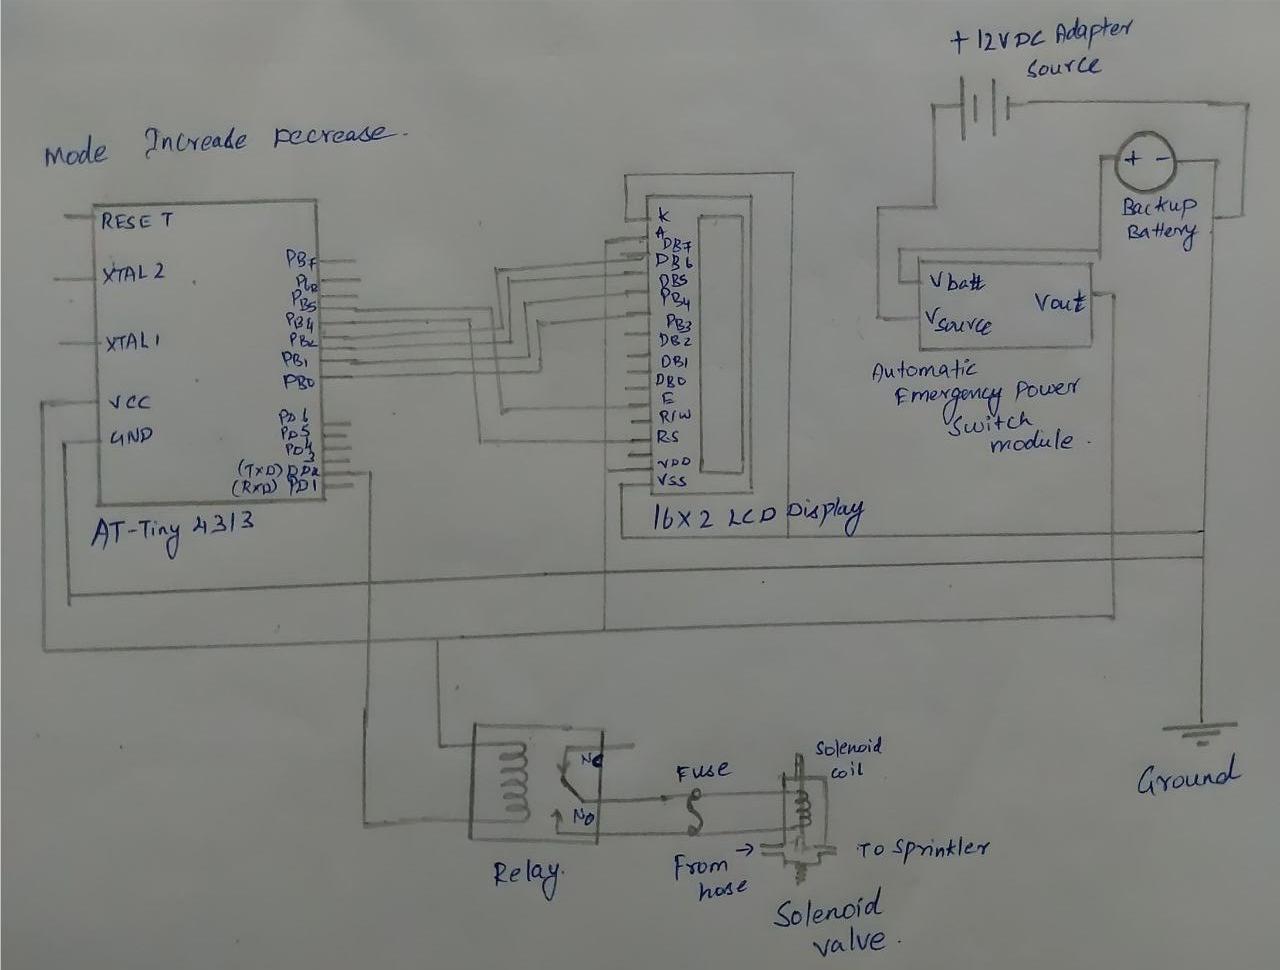 + 12V DC Adapter
source
Mode Increase Decrease.
RESET
XTAL2
XTAL1
VCC
GND
PB7
PB5
PB4
PB2
PB1
PB0
PD6
PD5
PD4
3
(TXD) PD2
(RXD) PD1
AT-Tiny 4313
K
A
DB7
DB6
DB5
PB4
PB3
DB2
DB1
DB0
E
R/W
RS
VDD
VSS
16X2 LCD Display
+ -
Backup
Battery
Vbatt
Vsource
Vout
Automatic
Emergency power
Switch
module.
Ground
NC
NO
Relay.
Fuse
Solenoid
coil
From
hose
To Sprinkler
Solenoid
valve.